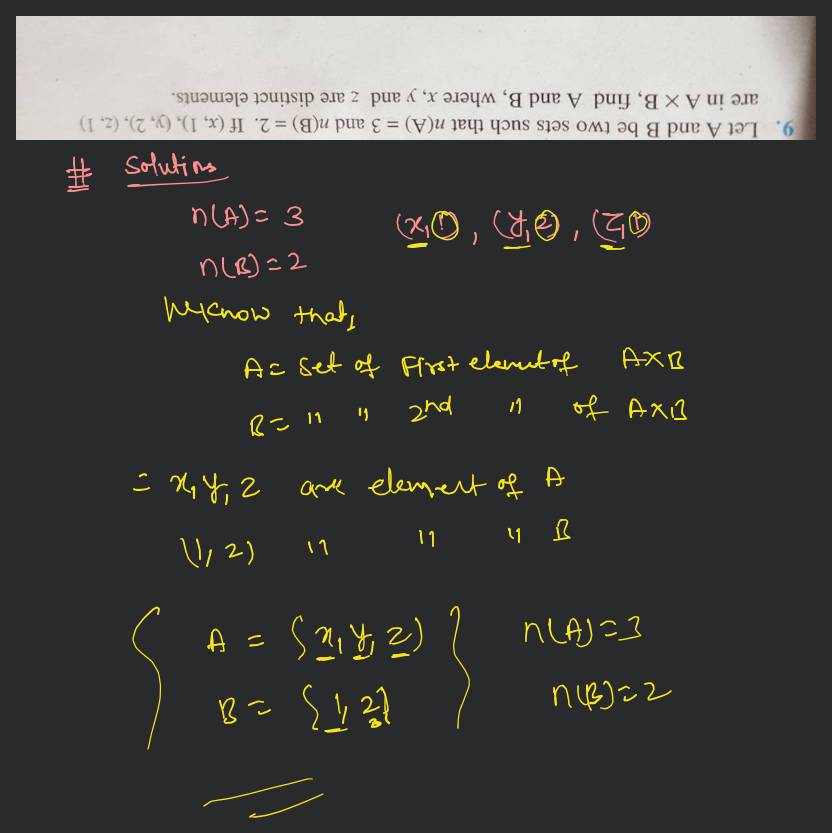 9. Let A and B be two sets such that n(A) = 3 and n(B) = 2. If (x, 1), (y, 2), (z, 1)
are in A × B, find A and B, where x, y and z are distinct elements.
# Solutions
n(A) = 3
(x, 1), (y, 2), (z, 1)
n(B) = 2
We know that,
A = Set of First element of A×B
B = " " 2nd " of A×B
= x, y, z are element of A
(1, 2) " " " B
A = {x, y, z}
n(A) = 3
B = {1, 2}
n(B) = 2